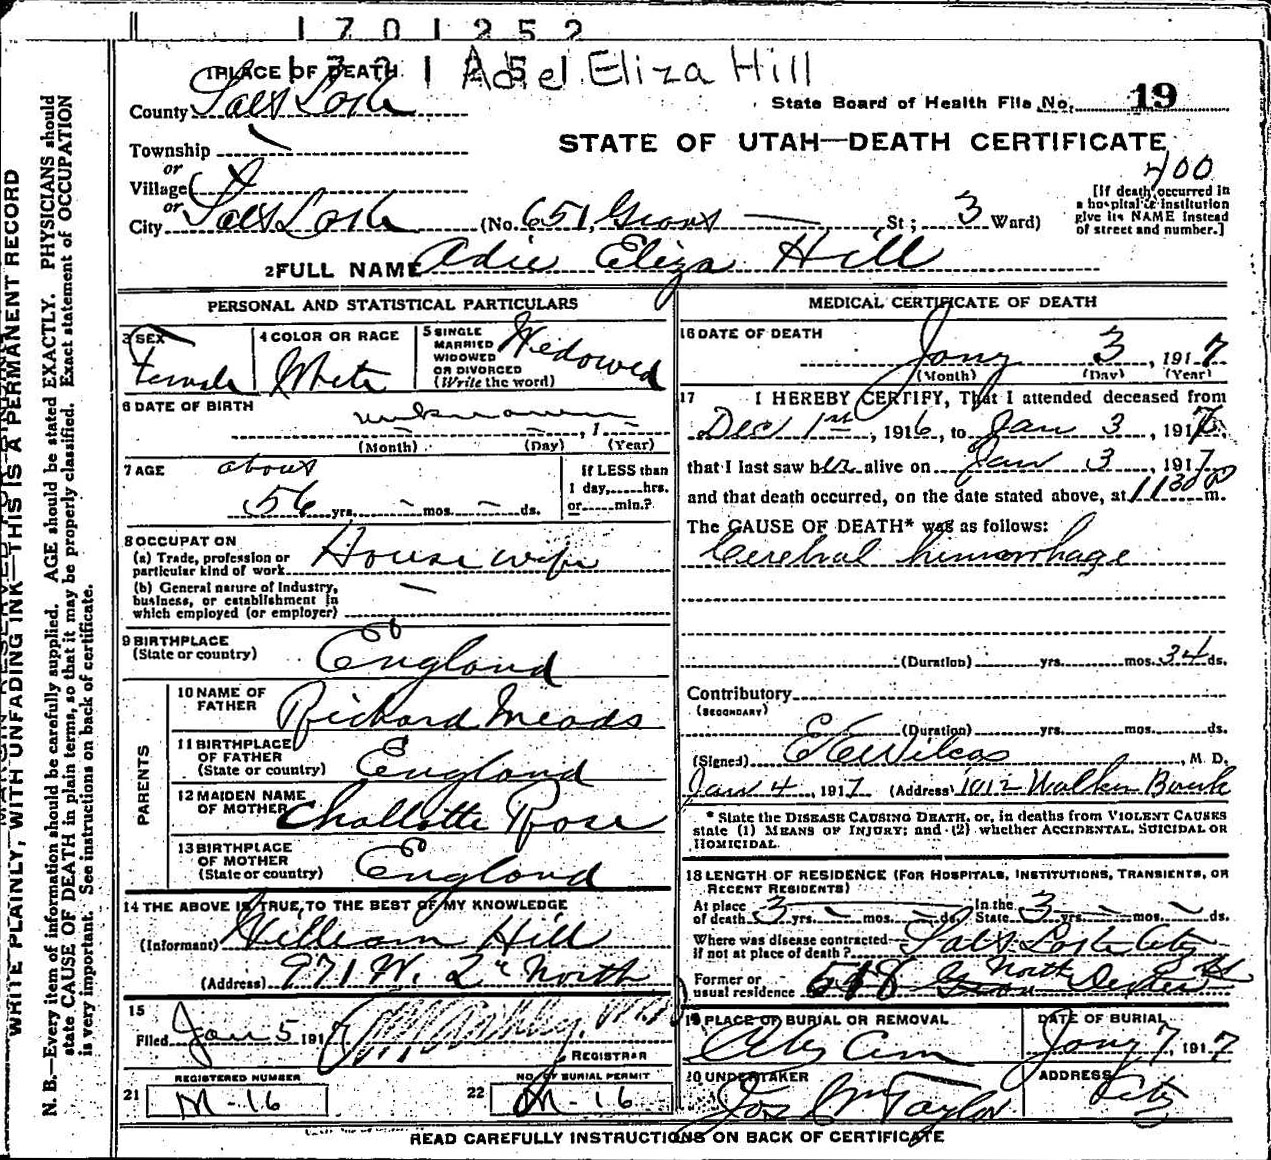 1701252
Adie Eliza Hill
1 PLACE OF DEATH
State Board of Health File No. 19
County Salt Lake
STATE OF UTAH—DEATH CERTIFICATE
Township
or
Village
or
400
[If death occurred in
a hospital or institution
give its NAME instead
of street and number.]
City Salt Lake (No. 651, , St; 3 Ward)
2 FULL NAME Adie Eliza Hill
PERSONAL AND STATISTICAL PARTICULARS
3 SEX
Female
4 COLOR OR RACE
White
5 SINGLE
MARRIED
WIDOWED
OR DIVORCED
(Write the word)
Widowed
6 DATE OF BIRTH
unknown
, 1
(Month) (Day) (Year)
7 AGE
about
56 yrs. - mos. - ds.
If LESS than
1 day,......hrs.
or......min.?
8 OCCUPATION
(a) Trade, profession or
particular kind of work
House wife
(b) General nature of industry,
business, or establishment in
which employed (or employer)
9 BIRTHPLACE
(State or country)
England
PARENTS
10 NAME OF
FATHER
Richard Meads
11 BIRTHPLACE
OF FATHER
(State or country)
England
12 MAIDEN NAME
OF MOTHER
Challotte Rose
13 BIRTHPLACE
OF MOTHER
(State or country)
England
14 THE ABOVE IS TRUE TO THE BEST OF MY KNOWLEDGE
(Informant) William Hill
(Address) 971 W. 2d North
15
Filed Jan 5 1917
REGISTRAR
REGISTERED NUMBER
21 M-16
NO. OF BURIAL PERMIT
22 M-16
MEDICAL CERTIFICATE OF DEATH
16 DATE OF DEATH
Jany 3, 1917
(Month) (Day) (Year)
17 I HEREBY CERTIFY, That I attended deceased from
Dec 1st, 1916, to Jan 3, 1917,
that I last saw her alive on Jan 3, 1917
and that death occurred, on the date stated above, at 1130 P m.
The CAUSE OF DEATH* was as follows:
Cerebral hemorrhage
(Duration) yrs. mos. 34 ds.
Contributory
(SECONDARY)
(Duration) yrs. mos. ds.
(Signed) E E Wilcox, M. D.
Jan 4, 1917 (Address) 1012 Walker Bank
* State the DISEASE CAUSING DEATH, or, in deaths from VIOLENT CAUSES
state (1) MEANS OF INJURY; and (2) whether ACCIDENTAL, SUICIDAL OR
HOMICIDAL.
18 LENGTH OF RESIDENCE (FOR HOSPITALS, INSTITUTIONS, TRANSIENTS, OR
RECENT RESIDENTS)
At place
of death 3 yrs. - mos. - ds.
In the
State 3 yrs. - mos. - ds.
Where was disease contracted
if not at place of death?
Salt Lake City
Former or
usual residence
518 North
19 PLACE OF BURIAL OR REMOVAL
City Cem
DATE OF BURIAL
Jany 7, 1917
20 UNDERTAKER
Jos Wm Taylor
ADDRESS
City
READ CAREFULLY INSTRUCTIONS ON BACK OF CERTIFICATE
WRITE PLAINLY, WITH UNFADING INK—THIS IS A PERMANENT RECORD
N. B.—Every item of information should be carefully supplied. AGE should be stated EXACTLY. PHYSICIANS should
state CAUSE OF DEATH in plain terms, so that it may be properly classified. Exact statement of OCCUPATION
is very important. See instructions on back of certificate.